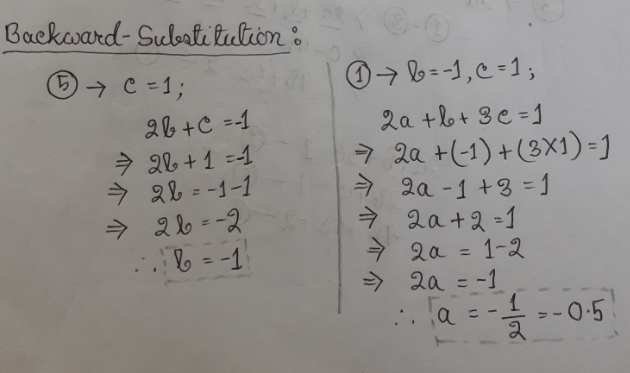 Backward-Substitution:
⑤ → c = 1;
2b + c = -1
⇒ 2b + 1 = -1
⇒ 2b = -1-1
⇒ 2b = -2
∴ b = -1
① → b = -1, c = 1;
2a + b + 3c = 1
⇒ 2a + (-1) + (3×1) = 1
⇒ 2a - 1 + 3 = 1
⇒ 2a + 2 = 1
⇒ 2a = 1-2
⇒ 2a = -1
∴ a = -1/2 = -0.5